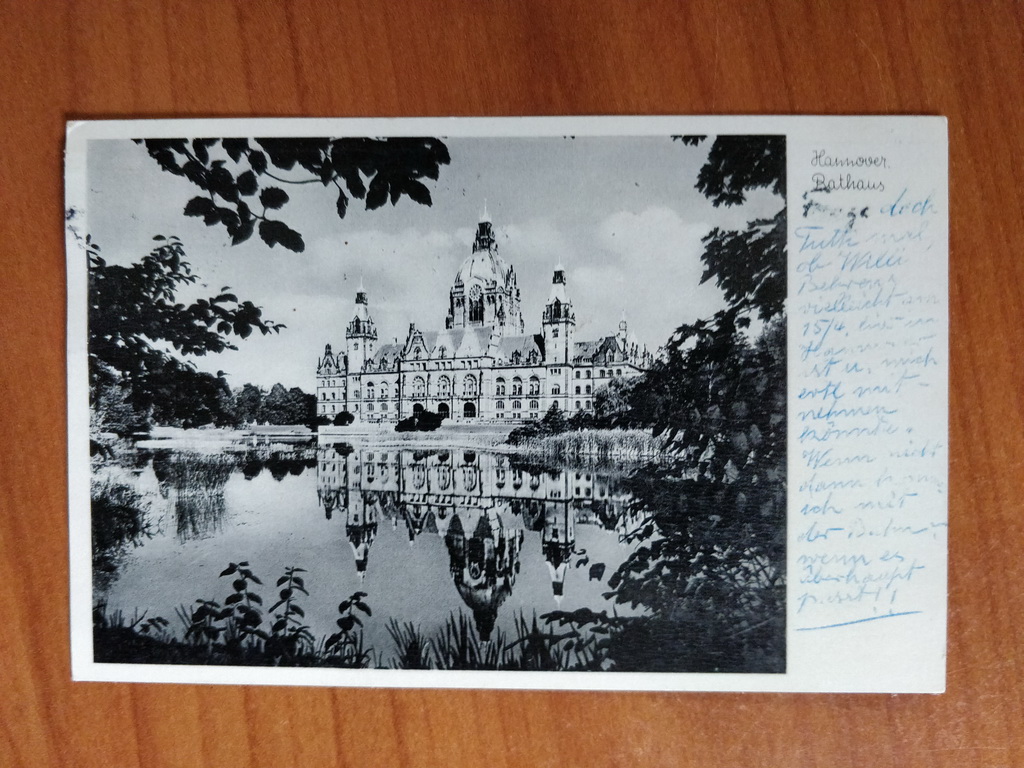 Hannover.
Rathaus
Frage doch
Tutti mal,
ob Willi
vielleicht am
15/4. hier in
Hannover
ist u. mich
evtl mit-
nehmen
könnte.
Wenn nicht
dann komme
ich mit
der Bahn,
wenn es
überhaupt
passt!!